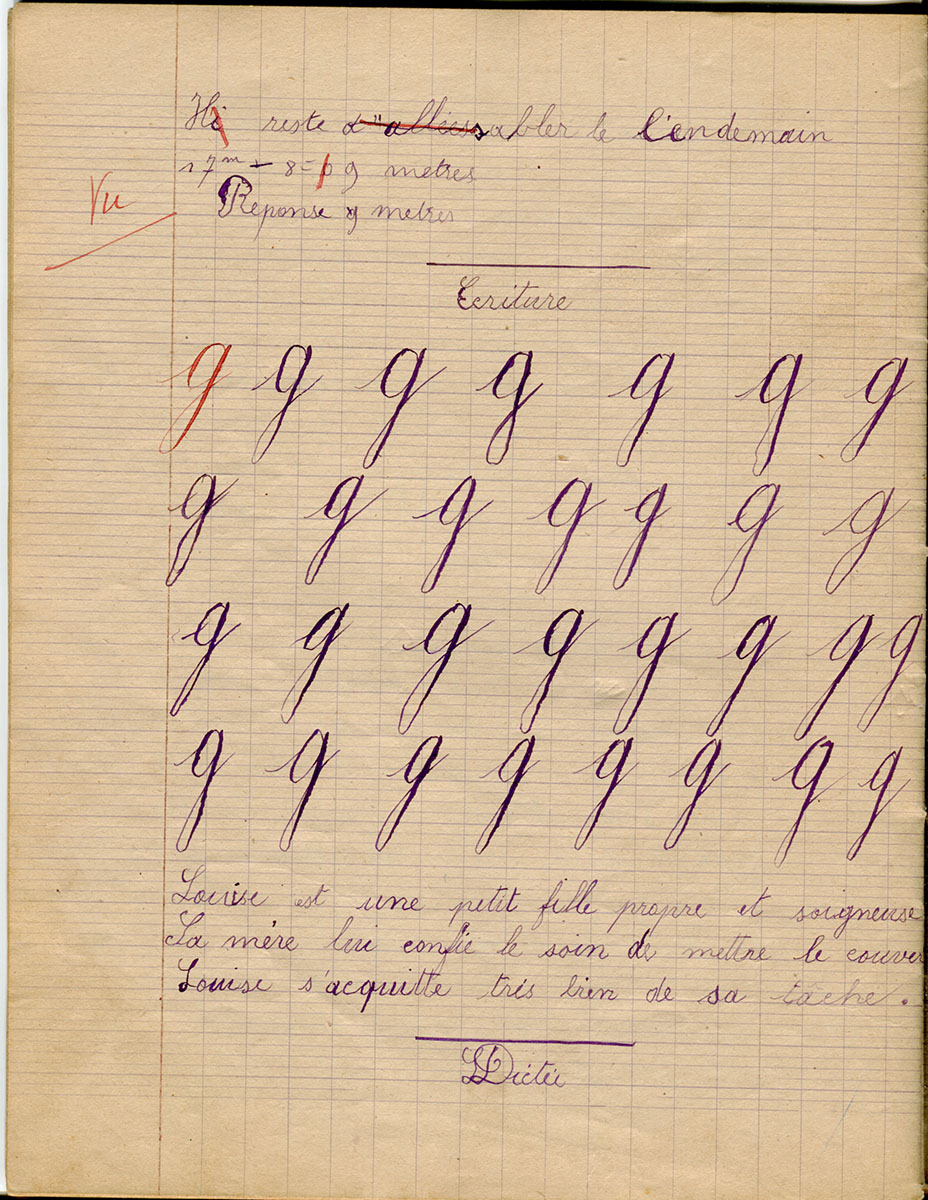 Hi reste d'allées sabler le lendemain
17m - 8 = 9 metres
Vu
Reponse 9 metres
Ecriture
g g g g g g g
g g g g g g g
g g g g g g g g
g g g g g g g g
Louise est une petit fille propre et soigneuse
Sa mère lui confie le soin de mettre le couver
Louise s'acquitte très bien de sa tâche.
Dictée